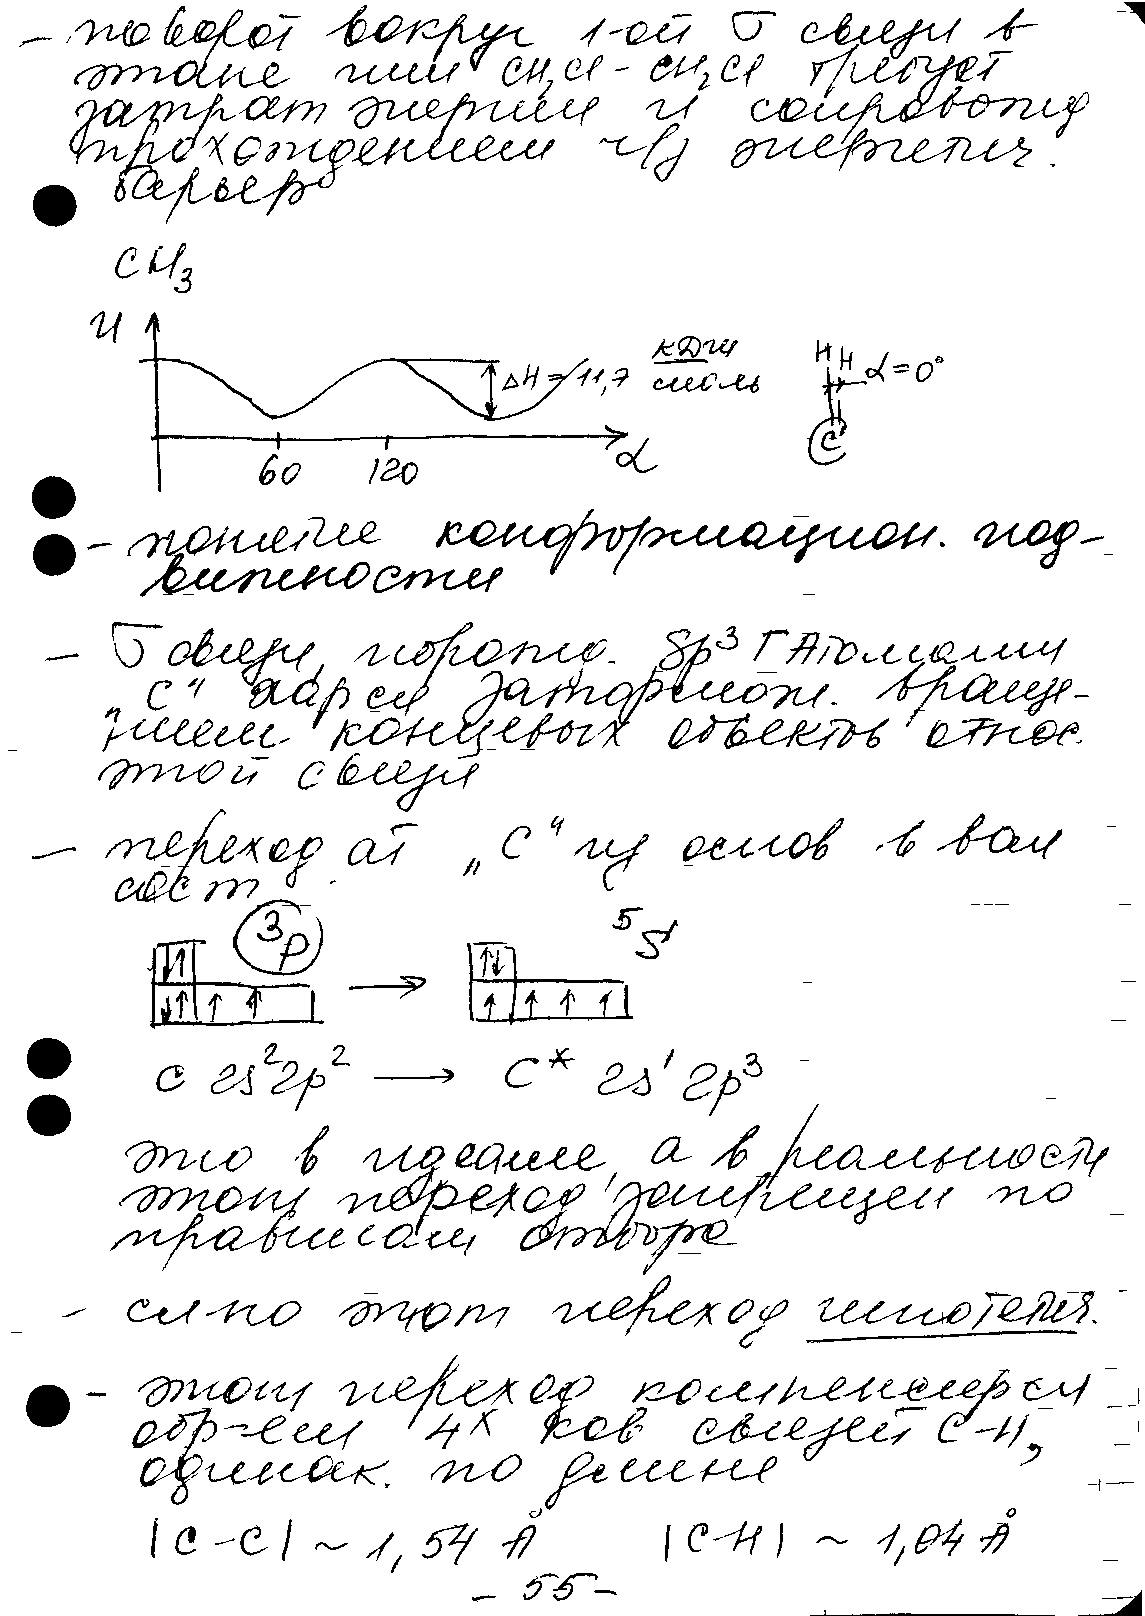 – поворот вокруг 1-ой σ связи в
этане или CH₂Cl – CH₂Cl требует
затрат энергии и сопровожд
прохождением ч/з энергетич.
барьер
CH₃
U
ΔH = 11,7 кДж/моль
60 120 α
H H α = 0°
C
– понятие конформацион. под-
вижности
– σ связи, порожд. sp³ г Атомами
„C“ хар-ся заторможен. враще-
нием концевых объектов относ.
этой связи
– переход ат „C“ из основ в вал
сост
³P → ⁵S
C 2s²2p² → C* 2s¹2p³
это в идеале, а в реальности
этот переход запрещен по
правилам отбора
– сл-но этот переход гипотетич.
– этот переход компенсир-ся
обр-ем 4ˣ ков связей C–H,
одинак. по длине
|C–C| ~ 1,54 Å |C–H| ~ 1,04 Å
– 55 –